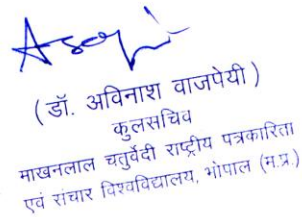 (डॉ. अविनाश वाजपेयी)
कुलसचिव
माखनलाल चतुर्वेदी राष्ट्रीय पत्रकारिता
एवं संचार विश्वविद्यालय, भोपाल (म.प्र.)